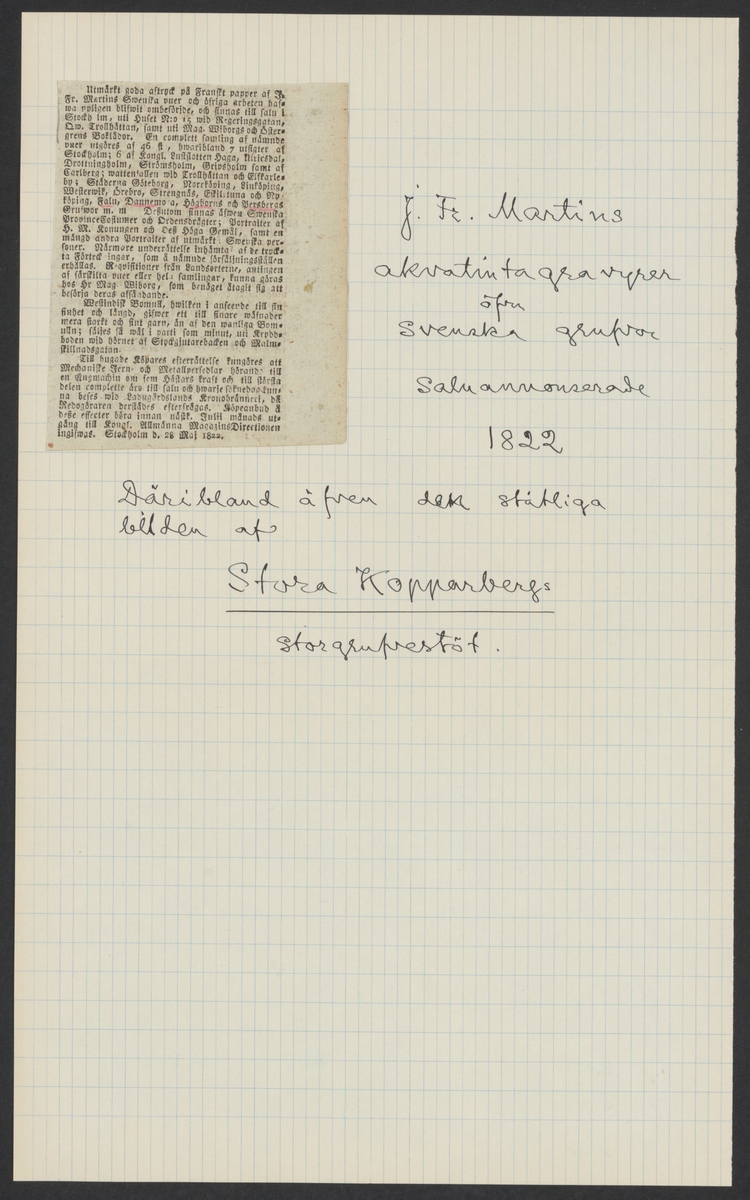 Utmärkt goda aftryck på Franskt papper af J.
Fr. Martins Swenska vuer och öfriga arbeten haf-
wa nyligen blifwit ombesörjde, och finnas till salu i
Stockh lm, uti Huset N:o 15 wid Regeringsgatan,
Qw. Trollhättan, samt uti Mag. Wiborgs och Öster-
grens Boklådor. En complett samling af nämnde
vuer utgöres af 46 st, hwaribland 7 utsigter af
Stockholm; 6 af Kongl. Lustslotten Haga, Ulricsdal,
Drottningholm, Strömsholm, Gripsholm samt af
Carlberg; wattenfallen wid Trollhättan och Elfkarle-
by; Städerna Götheborg, Norrköping, Linköping,
Westerwik, Örebro, Strengnäs, Eskilstuna och Ny-
köping, Falu, Dannemo a, Högborns och Persbergs
Grufwor m. m Desutom finnas äfwen Swenska
ProvinceCostumer och Ordensdrägter; Portraiter af
H. M. Konungen och Deß Höga Gemål, samt en
mängd andra Portraiter af utmärkt Swenska per-
soner. Närmare underrättelse inhämtas af de tryck-
ta Förteckningar, som å nämnde försäljningsställen
erhållas. Reqvisitioner från Landsorterne, antingen
af särskilta vuer eller hela samlingar, kunna göras
hos Hr Mag. Wiborg, som benäget åtagit sig att
besörja deras affsändande.
Westindisk Bomull, hwilken i anseende till sin
finhet och längd, gifwer ett till finare wäfnader
mera starkt och fint garn, än af den wanliga Bom-
ulln; säljes så wäl i parti som minut, uti Krydd-
boden wid hörnet af Styckgjutarebacken och Malm-
skillnadsgatan.
Till hugade Köpares efterrättelse kungöres att
Mechaniske Jern- och Metallpersedlar hörande till
en Ångmachin om fem Hästars kraft och till största
delen complette äro till salu och hwarje söknedag kun-
na beses wid Ladugårdslands Kronobränneri, då
Redogöraren derstädes efterfrågas. Köpeanbud å
deße effecter böra innan nästk. Julii månads ut-
gång till Kongl. Allmänna MagazinsDirectionen
ingifwas. Stockholm d. 28 Maj 1822.
J. Fr. Martins
akvatintagravyrer
öfver
Svenska grufvor
Saluannonserade
1822
Däribland äfven den ståtliga
bilden af
Stora Kopparbergs
storgrufvestöt.